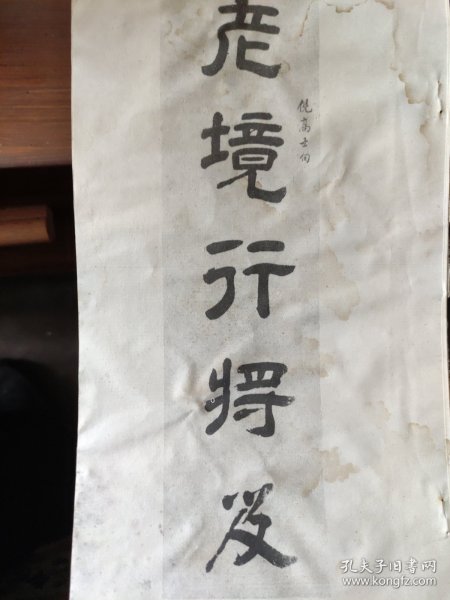 老境行将及
倪高士句
孔夫子旧书网
www.kongfz.com